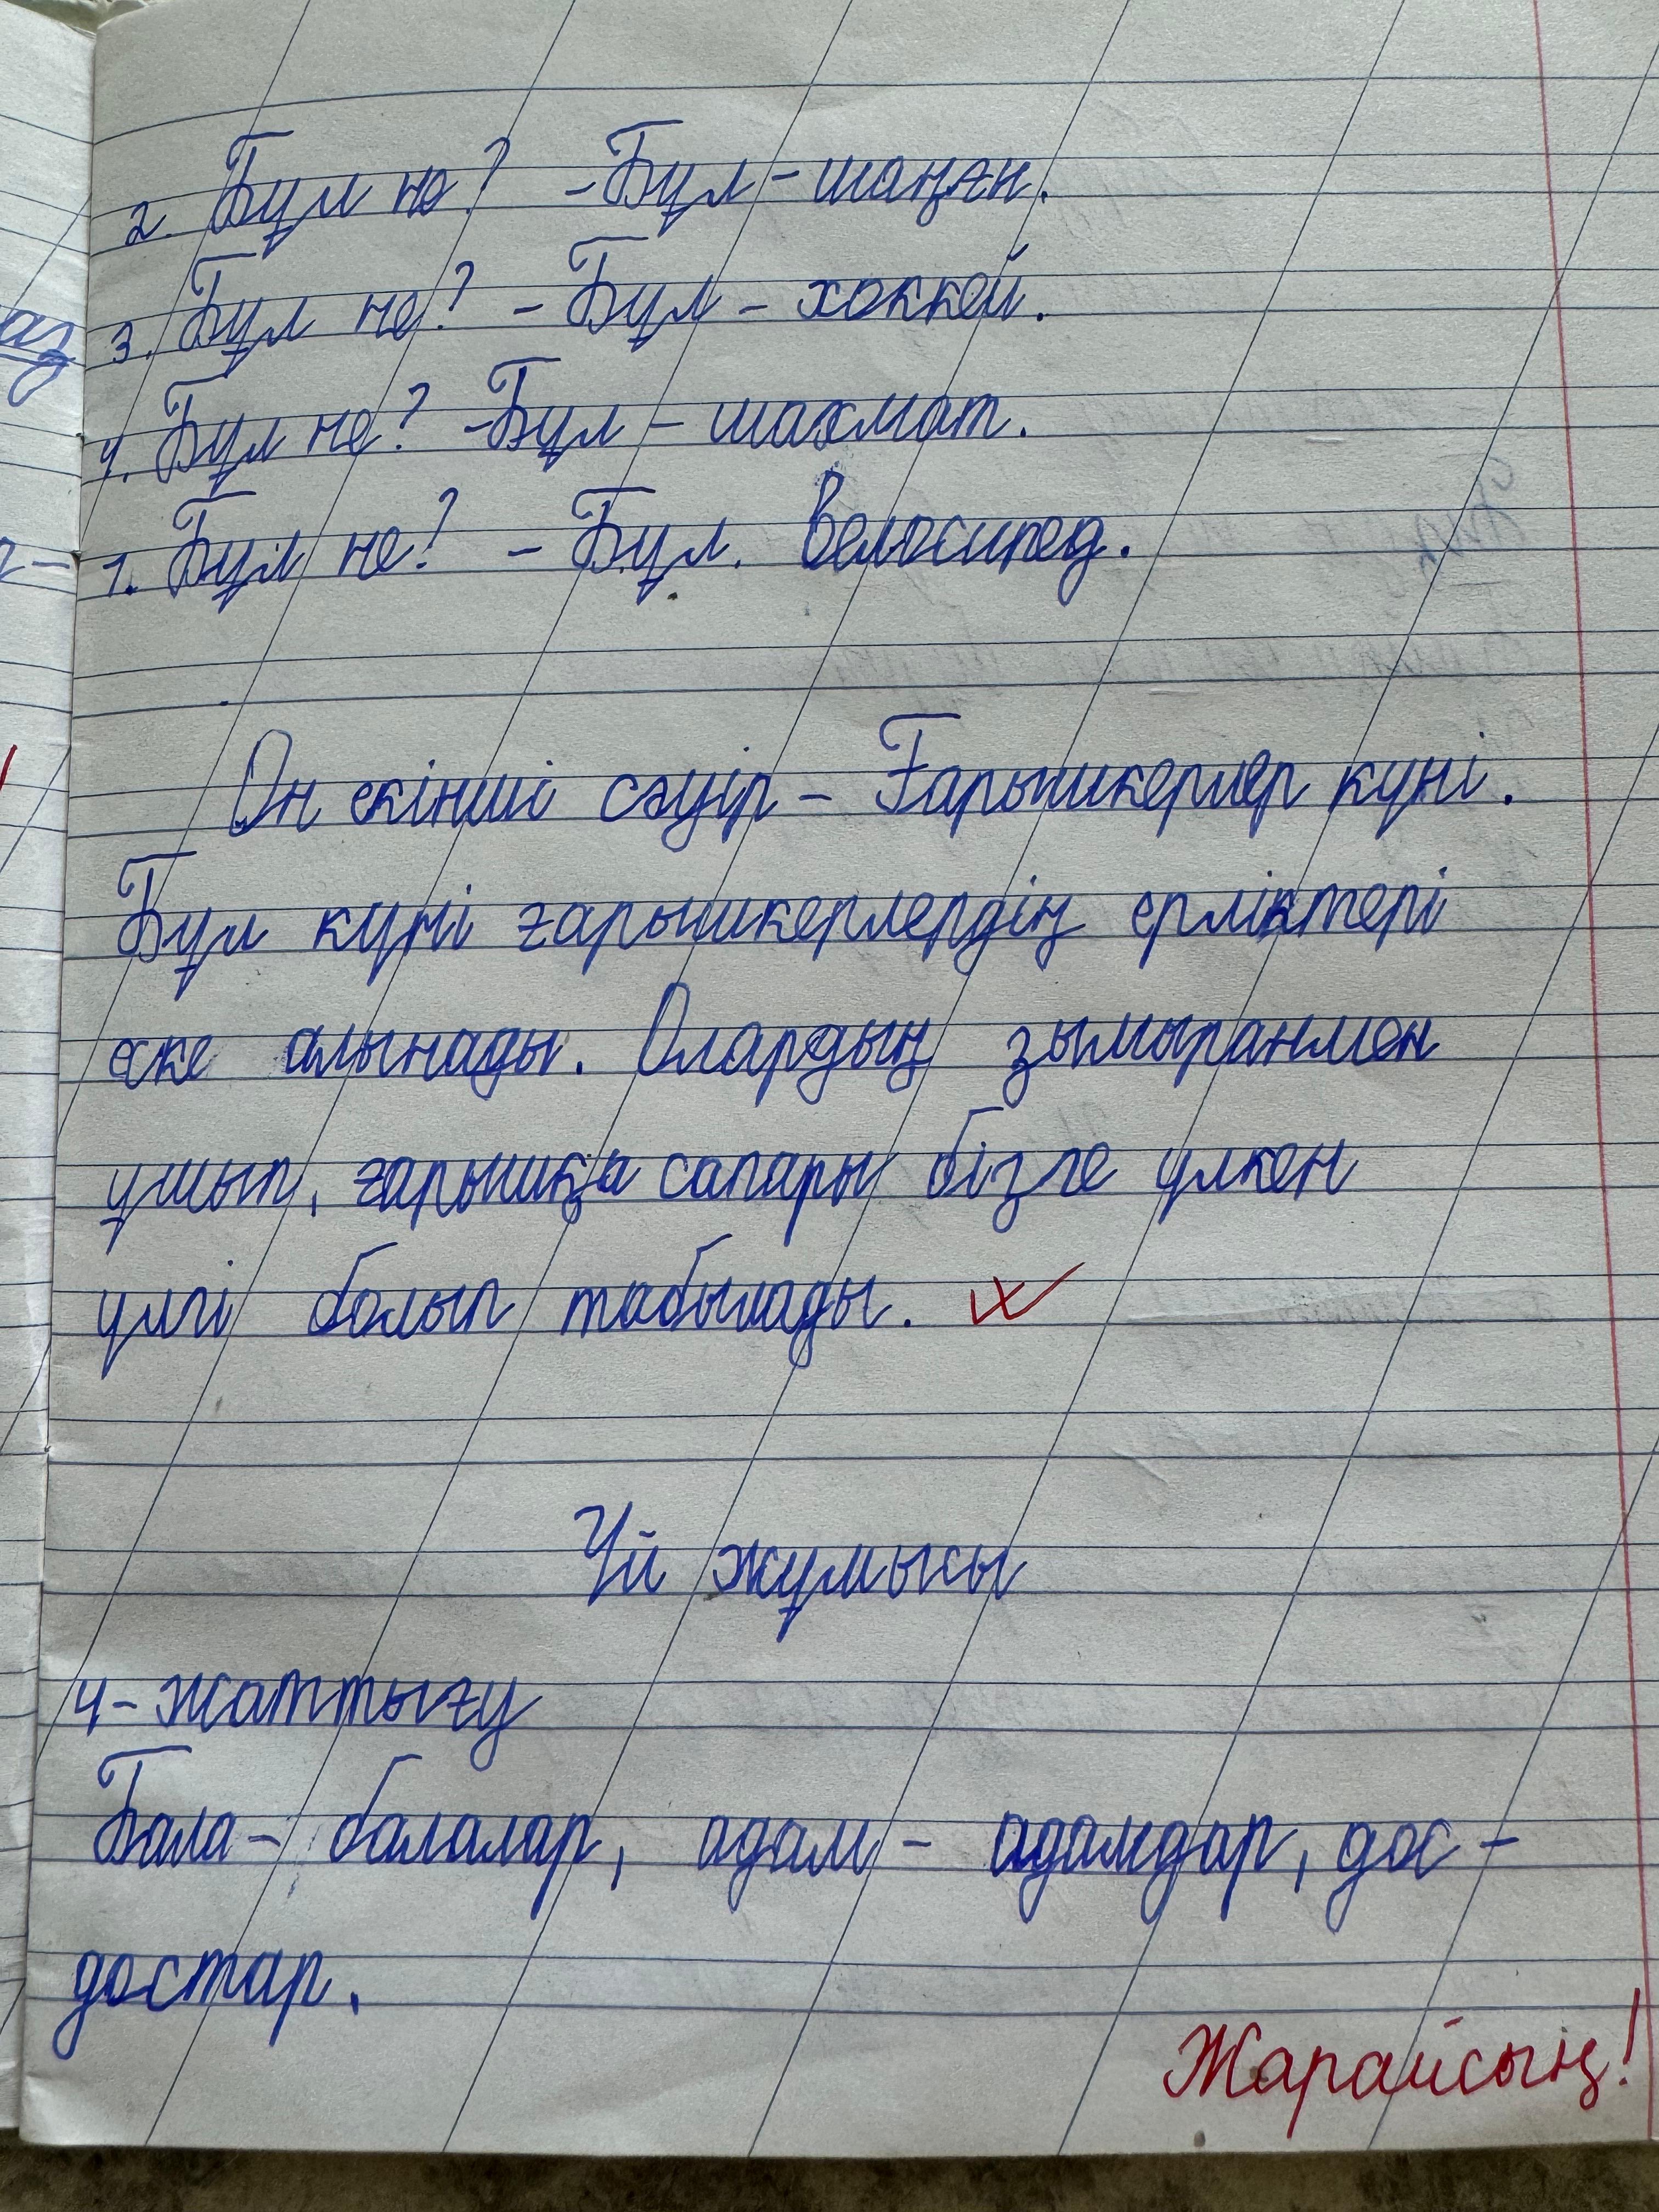 2. Бұл не? - Бұл - шаңғы.
3. Бұл не? - Бұл - хоккей.
4. Бұл не? - Бұл - шахмат.
1. Бұл не? - Бұл. велосипед.
Он екінші сәуір - Ғарышкерлер күні.
Бұл күні ғарышкерлердің ерліктері
еске алынады. Олардың зымыранмен
ұшып, ғарышқа сапары бізге үлкен
үлгі болып табылады.
Үй жұмысы
4-жаттығу
Бала - балалар, адам - адамдар, дос -
достар.
Жарайсың!